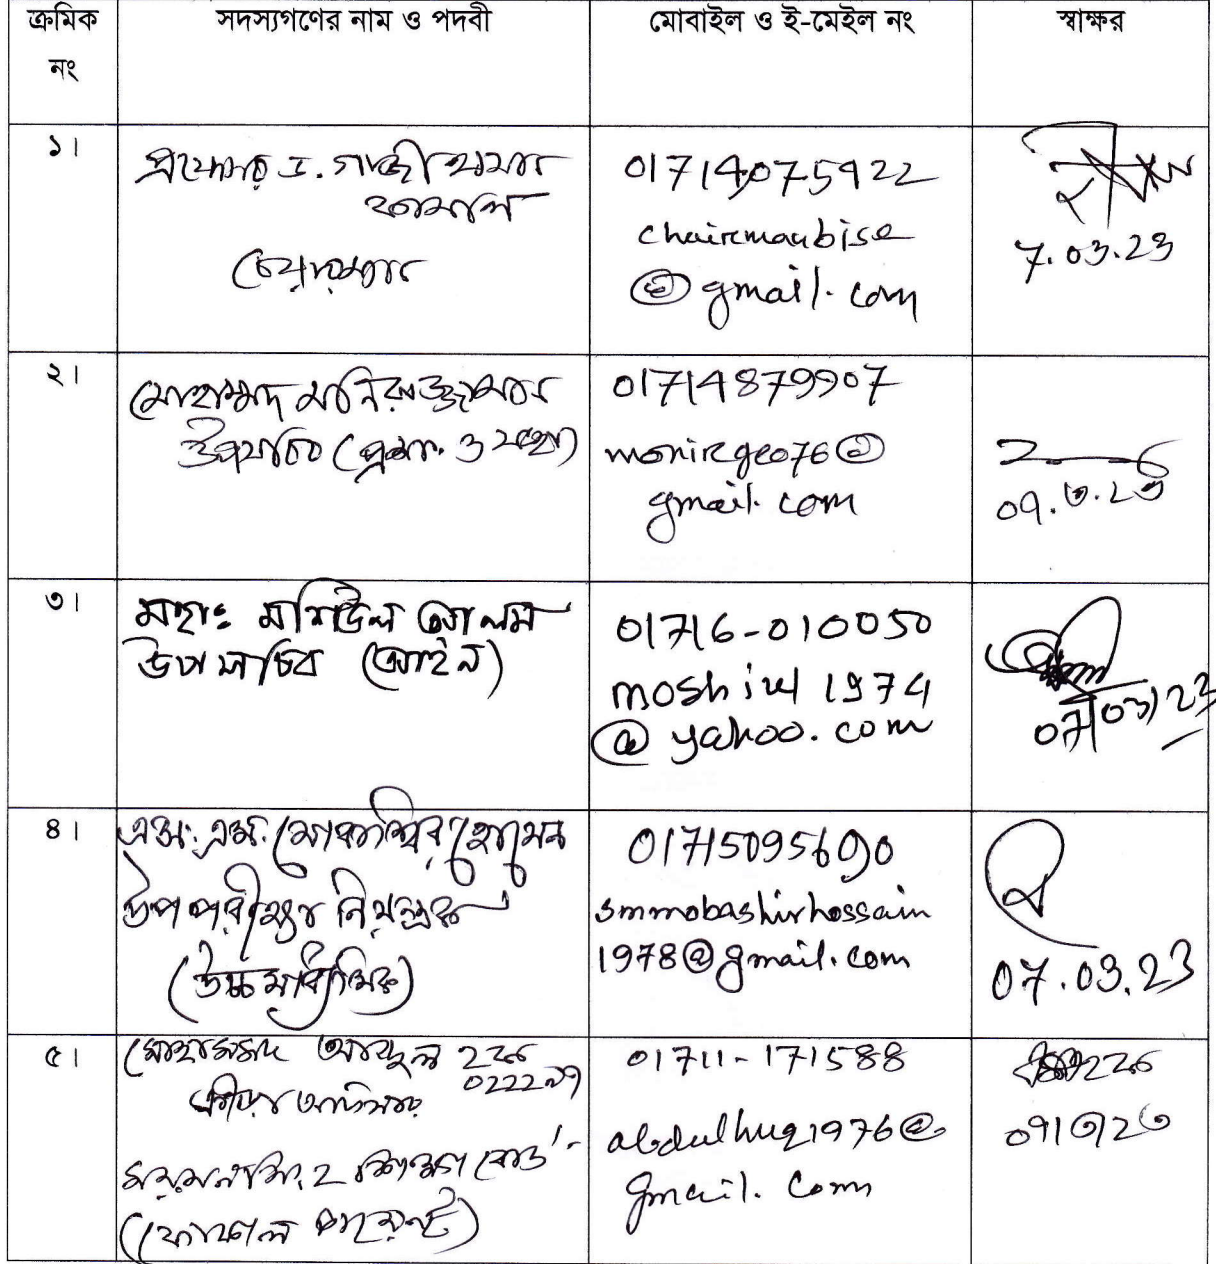 ক্রমিক নং সদস্যগণের নাম ও পদবী মোবাইল ও ই-মেইল নং স্বাক্ষর
১। প্রফেসর ড. গাজী হাসান কামাল
চেয়ারম্যান
01714075922
chairmanbise
@gmail.com
7.03.23
২। মোহাম্মদ মনিরুজ্জামান
উপসচিব (প্রশা. ও সংস্থা)
01714879907
monirgeo76@
gmail.com
০৭.৩.২৩
৩। মহাঃ মশিউল আলম
উপ সচিব (আইন)
01716-010050
moshiul 1974
@yahoo.com
07/03/23
৪। এস. এম. মোবাশ্বির হোসেন
উপ পরীক্ষা নিয়ন্ত্রক
(উচ্চমাধ্যমিক)
01715095690
smmobashirhossain
1978@gmail.com
07.03.23
৫। মোহাম্মদ আব্দুল হক
ক্রীড়া অফিসার
ময়মনসিংহ শিক্ষা বোর্ড
(ফোকাল পয়েন্ট)
01711-171588
abdulhuq1976@
gmail.com